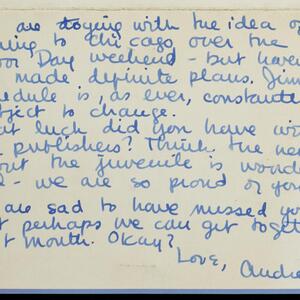 are toying with the idea of
ing to chicago over the
or Day weekend - but haven
made definite plans. Jim
edule is, as ever, constantl
bject to change.
at luck did you have wi
publishers? Think the ne
out the juvenile is wonde
- we are so proud of you
are sad to have missed yo
t perhaps we can get toget
t month. Okay?
Love,
Audre